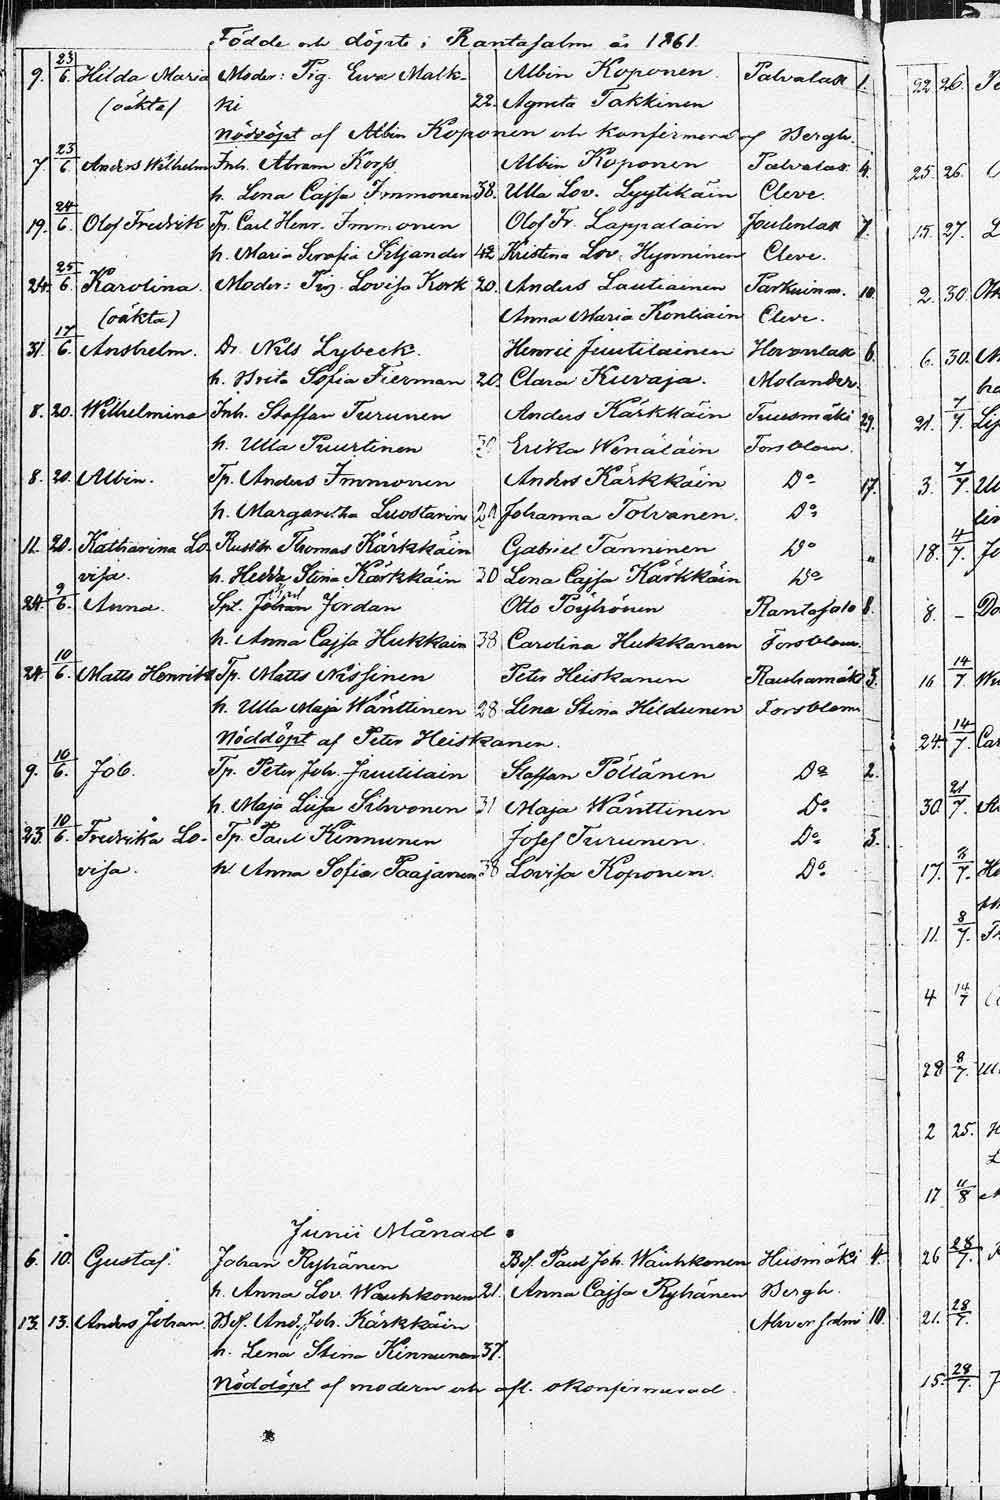 Födde och döpte i Rantasalm år 1861.
9. 23/6. Hilda Maria Moder: Pig. Ewa Malk- Albin Koponen Palvalax 1.
(oäkta) ki 22. Agneta Takkinen
Nöddöpt af Albin Koponen och konfirmerad af Bergh.
7. 23/6 Anders Wilhelm Inh. Abram Korps Albin Koponen Palvalax 4.
h. Lena Cajsa Immonen 38. Ulla Lov. Lyytikäin Cleve.
19. 24/6. Olof Fredrik Tp. Carl Henr. Immonen Olof Fr. Lappalain Joutenlax 7.
h. Maria Serafia Siljander 42 Kristina Lov. Hynninen Cleve.
24. 25/6. Karolina. Moder: Pig. Lovisa Kork 20. Anders Lautiainen Parkuinm. 10.
(oäkta) Anna Maria Kontiain Cleve.
31. 17/6. Anshelm. Dr. Nils Lybeck. Henric Juutilainen Hovinlax 6.
h. Brita Sofia Fierman 20. Clara Kuvaja. Molander.
8. 20. Wilhelmina Inh. Staffan Turunen Anders Kärkkäin Tuusmäki 29.
h. Ulla Puurtinen 30 Erika Wenäläin Forsblom.
8. 20. Albin. Tp. Anders Immonen Anders Kärkkäin Do 17.
h. Margaretha Luostarin 20 Johanna Tolvanen. Do
11. 20. Katharina Lo- Rusth. Thomas Kärkkäin Gabriel Tanninen Do "
visa. h. Hedda Stina Kärkkäin 30 Lena Cajsa Kärkkäin Do
24. 9/6. Anna. Spt. Johan Jordan Otto Pöyhönen Rantasalo 8.
h. Anna Cajsa Hukkain 38 Carolina Hukkanen Forsblom.
24. 10/6. Matts Henrik Tp. Matts Nissinen Peter Heiskanen Rauhamäki 3.
h. Ulla Maja Wänttinen 28 Lena Stina Hildunen Forsblom
Nöddöpt af Peter Heiskanen.
9. 10/6. Job. Tp. Peter Joh. Juutilain Staffan Pöllänen Do 2.
h. Maja Liisa Silvonen 31 Maja Wänttinen Do
23. 10/6. Fredrika Lo- Tp. Paul Kinnunen Josef Turunen. Do 3.
visa. h. Anna Sofia Paajanen 38 Lovisa Koponen. Do
Junii Månad
6. 10. Gustaf. Johan Ryhänen Bef. Paul Joh. Wauhkonen Hiismäki 4.
h. Anna Lov. Wauhkonen 21. Anna Cajsa Ryhänen Bergh.
13. 13. Anders Johan. Bef. And. Joh. Kärkkäin Ahvensalmi 10.
h. Lena Stina Kinnunen 37.
Nöddöpt af modern och afl. okonfirmerad.
22. 26.
25. 26.
15. 27.
2. 30.
6. 30.
21. 7/7.
3. 7/7.
18. 4/7.
8. –
16 14/7
24. 14/7.
30. 21/7.
17.
11. 8/7.
4 14/7
28 8/7.
2 25.
17 11/8
26 28/7.
21. 28/7.
15. 28/7.